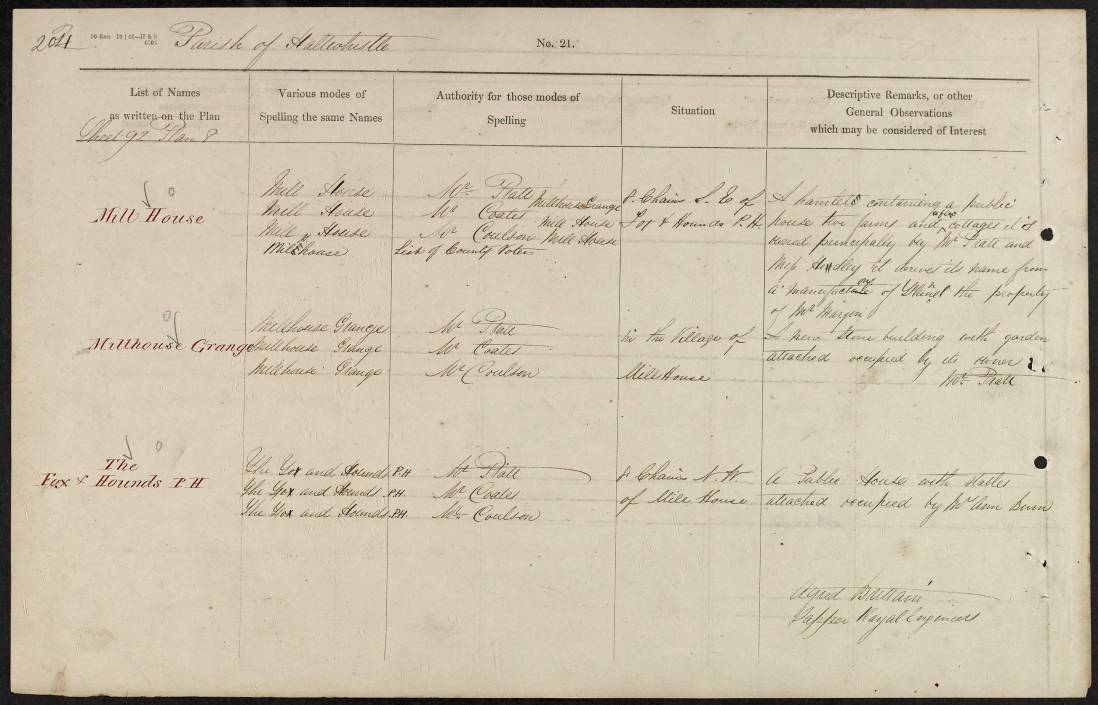 204
Parish of Haltwhistle
No. 21.
List of Names
as written on the Plan
Various modes of
Spelling the same Names
Authority for those modes of
Spelling
Situation
Descriptive Remarks, or other
General Observations
which may be considered of Interest
Sheet 92 Plan 8
Mill House
Mill House
Mill House
Mill House
Millhouse
Mr. Pratt Millhouse Grange
Mr Coates Mill House
Mr Coulson Mill House
List of County Voters
8 Chains S. E of
Fox & Hounds P.H.
A hamlet containing a public
house two farms and a few cottages it is
owned principally by Mr Pratt and
Miss it derives its name from
a manufactory of the property
of Mr
Millhouse Grange
Millhouse Grange
Millhouse Grange
Millhouse Grange
Mr Pratt
Mr Coates
Mr Coulson
in the Village of
Mill House
A new stone building with garden
attached occupied by its owner
Mr. Pratt
The
Fox & Hounds P H
The Fox and Hounds P.H
The Fox and Hounds P.H.
The Fox and Hounds P.H.
Mr Pratt
Mr Coates
Mr Coulson
8 Chains N. W.
of Mill House
A Public House with stables
attached occupied by Mrs Ann
Alfred Brittain
Sapper Royal Engineers